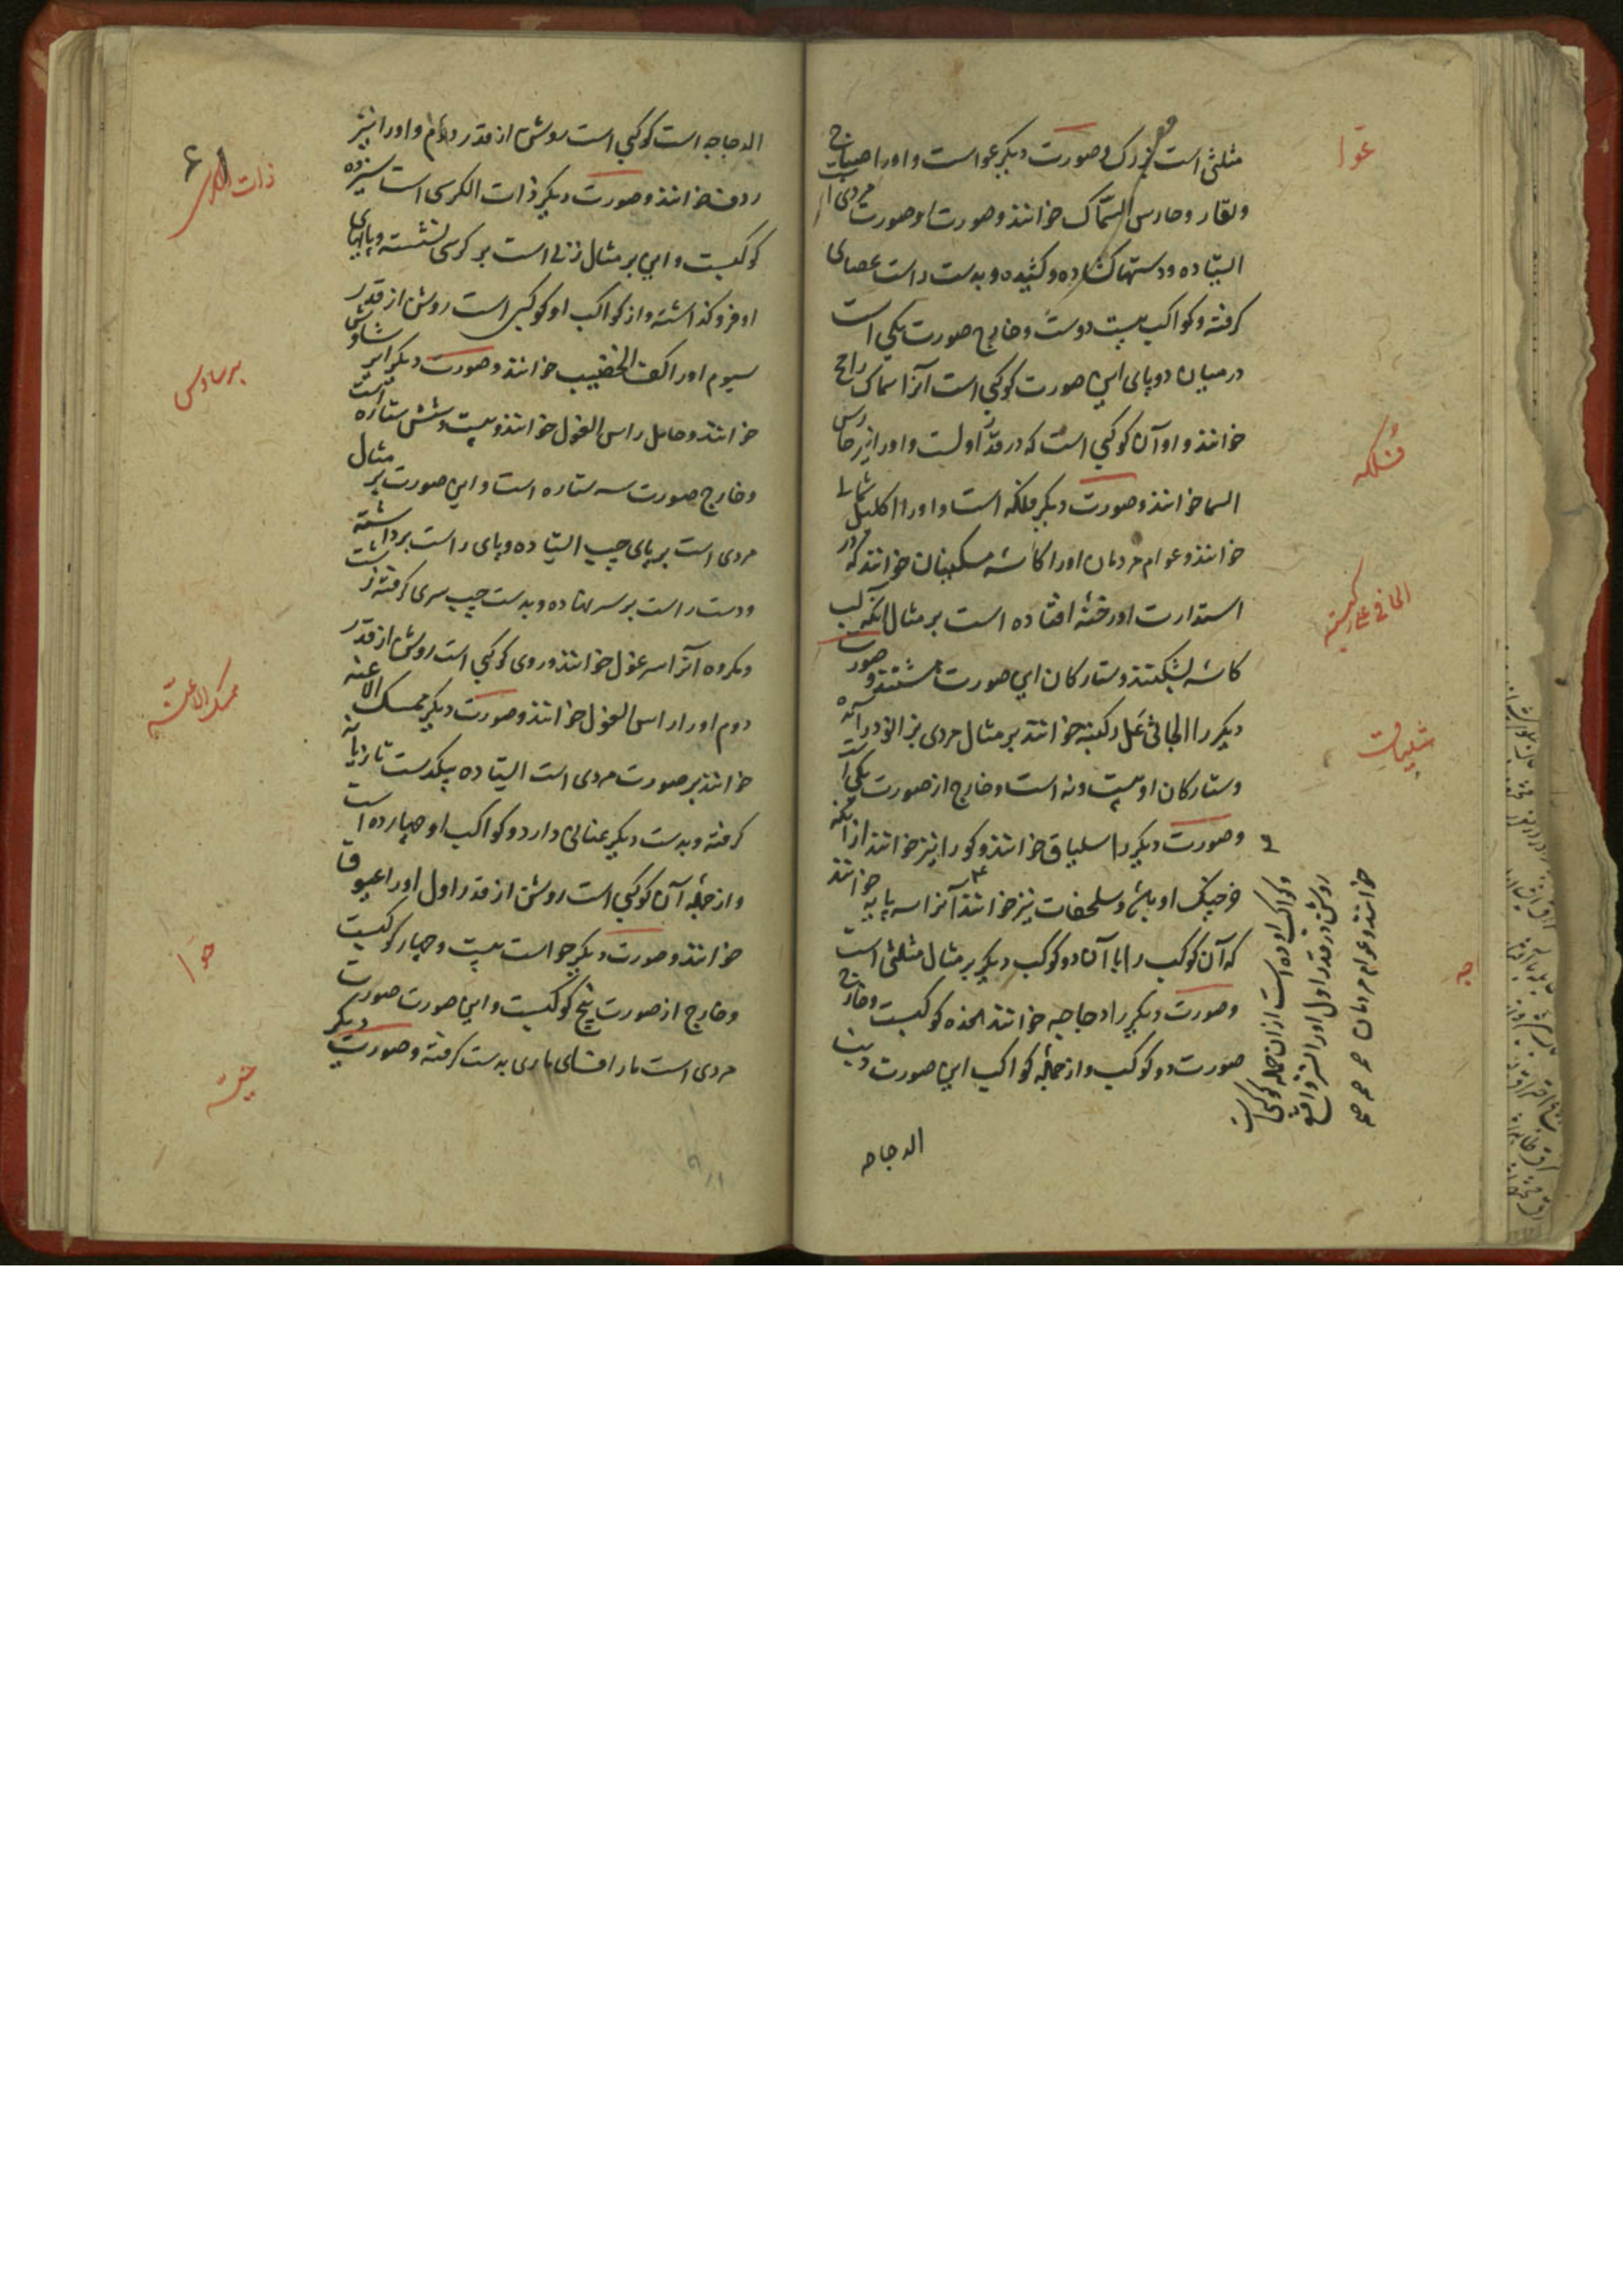 عوا
مثلثی است بزرک و صورت دیکر عوا است و اورا صیاح
و بقار و حارس السماک خوانند و صورت او صورت مردی است
ایستاده و دستها کشاده و کشیده و بدست راست عصای
کرفته و کواکب بیست دوست و خارج صورت یکی است
در میان دو پای این صورت کوکبی است آنرا سماک رامح
خوانند و او آن کوکبی است که در قدر اولست و اورا نیز حارس
السما خوانند و صورت دیکر فلکه است و اورا اکلیل شمالی
خوانند و عوام مردمان اورا کاسه مسکینان خوانند که در
استدارت او رخنه افتاده است بر مثال آنکه لب
کاسه بشکنند و ستارکان این صورت هشتند و صورت
دیکر را الجاثی علی رکبته خوانند بر مثال مردی بزانو درآمده
و ستارکان او بیست و نه است و خارج از صورت یکی است
و صورت دیکر را سلیاق خوانند و کورا نیز خوانند از آنکه
خرچنک او باش و سلحفات نیز خوانند آنرا سه پایه خوانند
که آن کوکب را با آن دو کوکب دیکر بر مثال مثلثی است
و صورت دیکر را دجاجه خوانند هفده کوکبست و خارج
صورت دو کوکب و از جمله کواکب این صورت ذنب
الدجاجه
فلکه
الجاثی علی رکبته
شلیاق
جه
و کواکب او ده است از ان جمله کوکبی است
روشن در قدر اول اورا نسر واقع
خوانند و عوام مردمان
الدجاجه است کوکبی است روشن از قدر دوم و اورا نیز
ردف خوانند و صورت دیکر ذات الکرسی است سیزده
کوکبست و این بر مثال زنی است بر کرسی نشسته و پایهای
او فرو کذاشته و از کواکب او کوکبی است روشن از قدر
سیوم اورا کف الخضیب خوانند و صورت دیکر را برشاوش
خوانند و حامل راس الغول خوانند و بیست و شش ستاره است
و خارج صورت سه ستاره است و این صورت بر مثال
مردی است بر پای چپ ایستاده و پای راست برداشته
و دست راست بر سر نهاده و بدست چپ سری کرفته زشت
و مکروه آنرا سر غول خوانند و روی کوکبی است روشن از قدر
دوم اورا راس الغول خوانند و صورت دیکر ممسک الاعنه
خوانند بر صورت مردی است ایستاده بیکدست تازیانه
کرفته و بدست دیکر عنانی دارد و کواکب او چهارده است
و از جمله آن کوکبی است روشن از قدر اول اورا عیوق
خوانند و صورت دیکر حوا است بیست و چهار کوکبست
و خارج از صورت پنج کوکبست و این صورت صورت
مردی است مار افسای ماری بدست کرفته و صورت دیکر
ذات الکرسی
برساوس
ممسک الاعنه
حوا
حیه